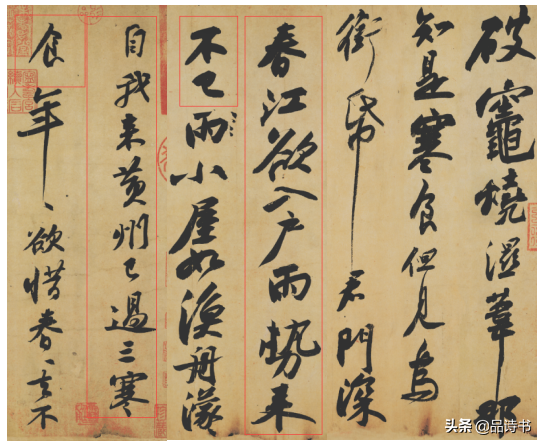 破竈燒濕葦那
知是寒食但見烏
銜帋君門深
春江欲入戶雨勢來
不已雨小屋如漁舟濛
自我來黃州已過三寒
食年〻欲惜春〻去不
头条 @品诗书